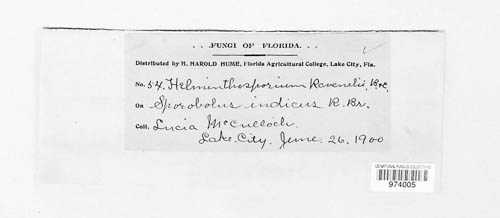 . . .FUNGI OF FLORIDA. . . .
Distributed by H. HAROLD HUME, Florida Agricultural College, Lake City, Fla.
No. 54. Helminthosporium Ravenelii, B&C.
On Sporobolus indicus R. Br.
Coll. Lucia McCulloch.
Lake City, June 26, 1900
US NATIONAL FUNGUS COLLECTIONS
974005